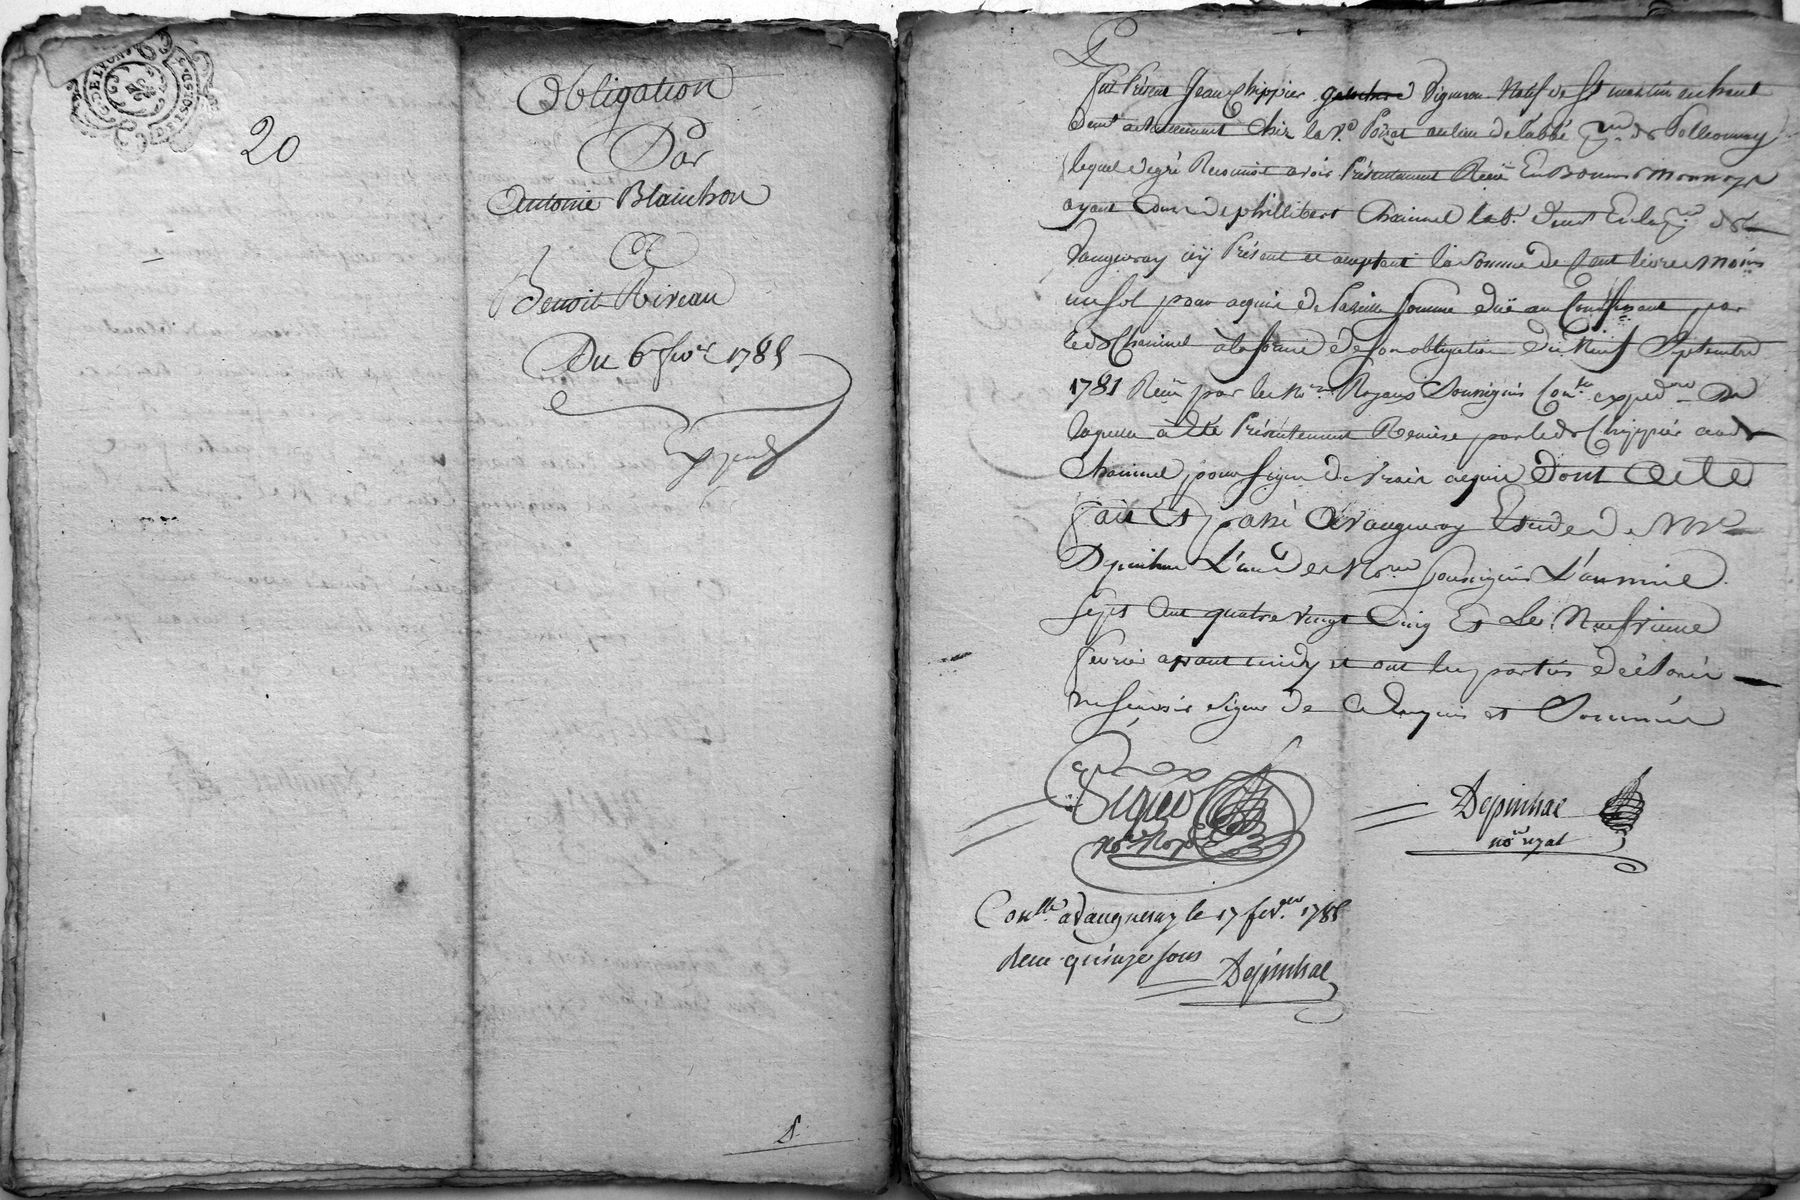 DE LYON
2 SOLS D
20
Obligation
Par
Antoine Blanchon
A
Benoit Riveau
Du 6 fevr 1785
Expend
fut Présent Jean Chippier Vigneron Natif de St martin en haut
demt actuellement Chez la Ve Poizat au lieu de l'abbé de Pollionnay
lequel de gré Reconnoit avoir Présentement Reçû En Bonne Monnoye
ayant Cour de phillibert Chainel lab. demt En la
Vaugneray icy Présent et acceptant la Somme de Cent livre Moins
un sol pour acquis de pareille Somme düe au Confessant par
led Chainel à la forme de son obligation du Neuf Septembre
1781 Reçu par les Nres Royaux Soussignés Conlé expédié De
laquelle à été Présentement Remise par led Chippier aud
Chainel pour Signe de vrais acquit Dont Acte
fait Et passé A Vaugneray Etude de Me
Depinhac L'un des Nres soussignés L'an mil
Sept Cent quatre Vingt Cinq Et Le Neufvieme
fevrier avant midy et ont les parties déclarés
ne sçavoir signer de Ce Requis et Sommés
Nore Roy
Depinhac
nore royal
Conllé a Vaugneray le 17 fevrier 1785
Reçu quinze sous
Depinhac